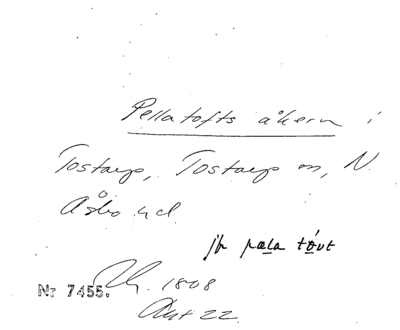 Pellatofts åkern i
Tostarp, Tostarp sn, N.
Åsbo hd.
jfr pæla tóvt
Nr 7455.
1808
Akt 22